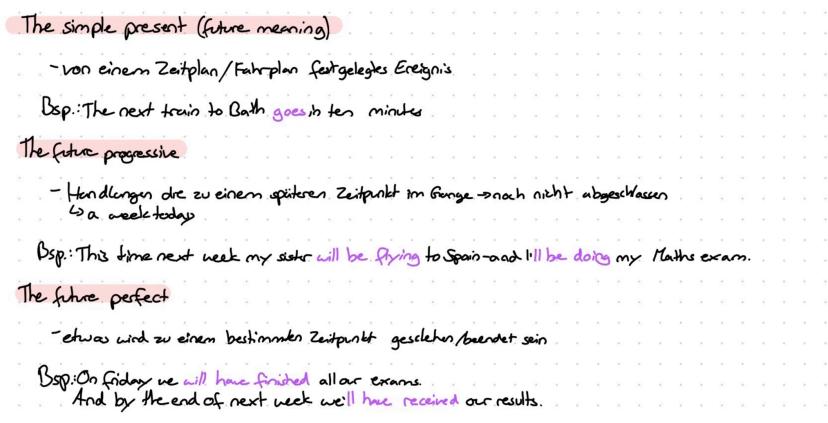 The simple present (future meaning)
- von einem Zeitplan/Fahrplan festgelegtes Ereignis
Bsp.: The next train to Bath goes in ten minutes
The future progressive
- Handlungen die zu einem späteren Zeitpunkt im Gange → noch nicht abgeschlossen
↳ a week today
Bsp.: This time next week my sister will be flying to Spain - and I'll be doing my Maths exam.
The future perfect
- etwas wird zu einem bestimmten Zeitpunkt geschehen/beendet sein
Bsp.: On friday we will have finished all our exams.
And by the end of next week we'll have received our results.